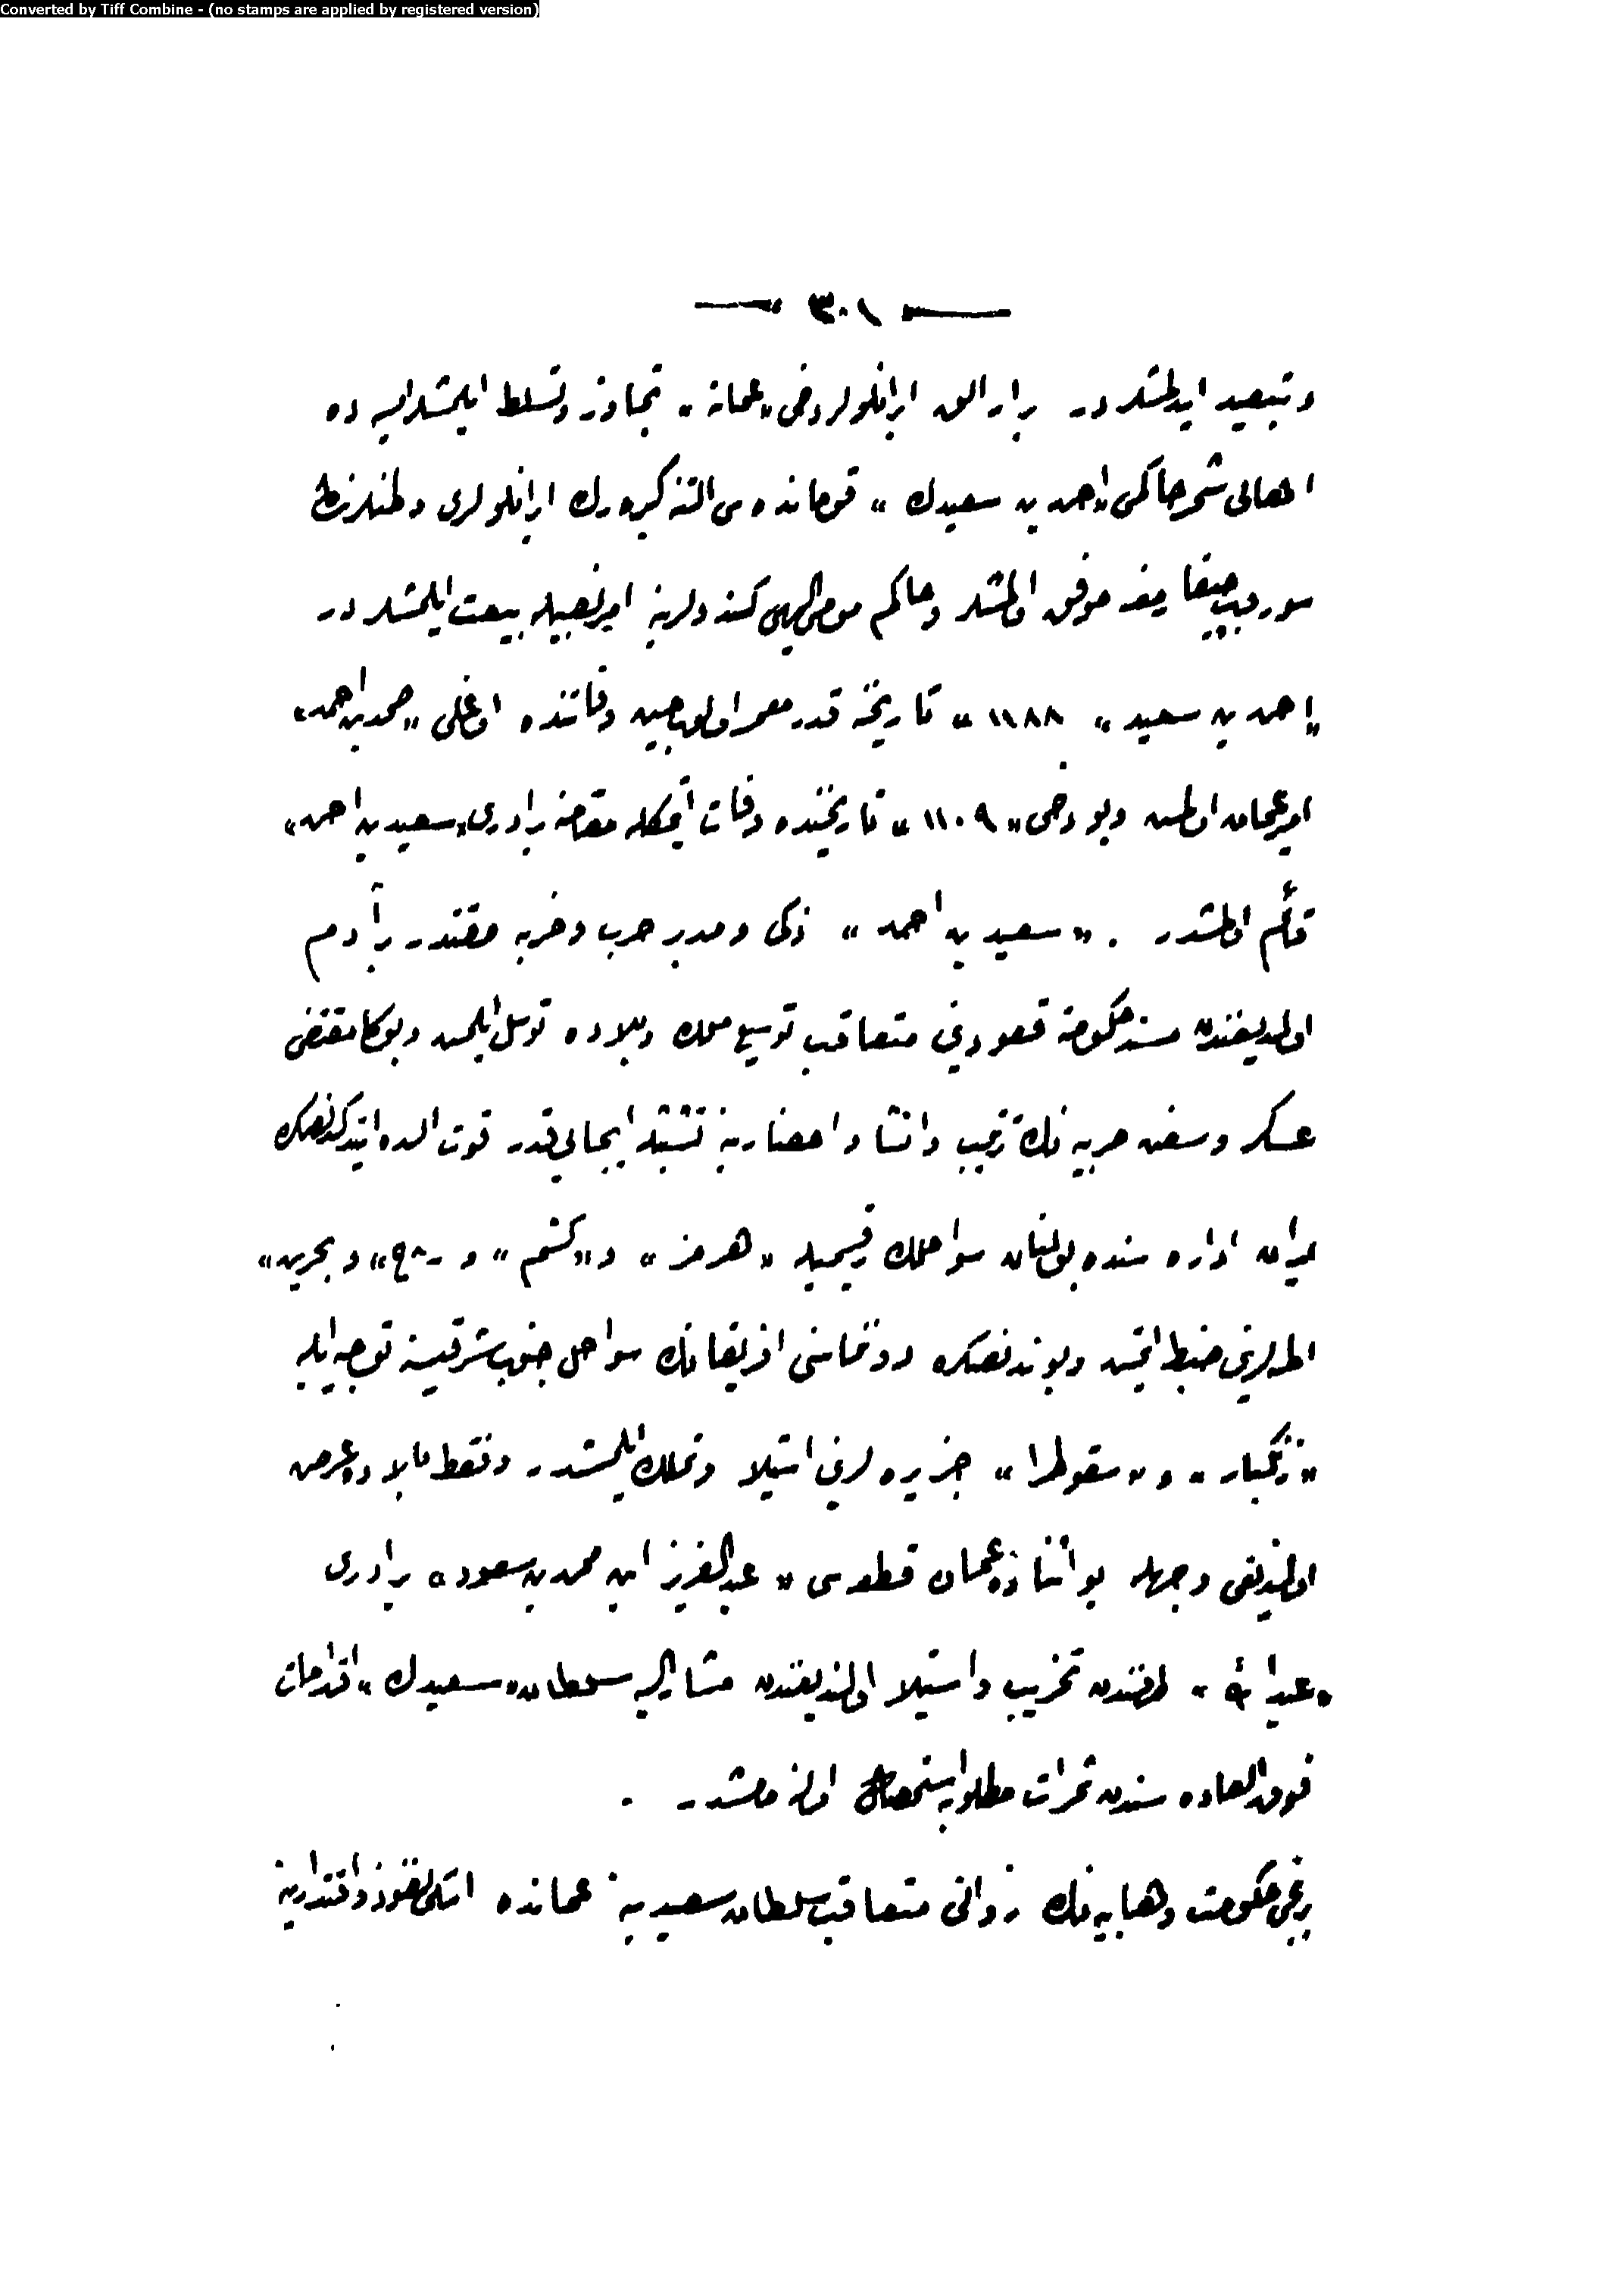 Converted by Tiff Combine - (no stamps are applied by registered version)
— ٣٠١ —
وتبعيد ايدلمشلردر برارالق ايرانلولردخى «عمانه» تجاوز وتسلط ايلمشلرايسه ده
اهالى شحر حاكمى «احمد بن سعيدك» قومانده سى التنه كيره رك ايرانلولرى وطنلرندن
سوروب چيقارمغه موفق اولمشلر وحاكم مومى اليهى كندولرينه امير نصبيله بيعت ايلمشلردر
«احمد بن سعيد» «١١٨٨» تاريخنه قدر معمر اولوب حين وفاتنده اوغلى «محمد بن احمد»
امير عمان اولمش وبو دخى «١١٠٩» تاريخنده وفات ايتمكله مقامنه برادرى «سعيد بن احمد»
قائم اولمشدر . «سعيد بن احمد» ذكى ومدبر حرب وضربه مقتدر بر آدم
اولديغندن مسند حكومته قعودينى متعاقب توسيع ملك وبلاده توسل ايلمش وبوكا مقتضى
عسكر وسفن حربيه نك ترتيب وانشا واحضارينه تشبثله ايجابى قدر قوت الده ايتدكدنصكره
ايران اداره سنده بولنان سواحلك قسميله «هرمز» و«كشم» و «بحرين»
اطه لرينى ضبط ايتمش وبوندنصكره دونماسنى افريقانك سواحل جنوب شرقيسنه توجيه ايله
«زنكبار» و «سقوطرا» جزيره لرينى استيلا وتملك ايلمشدر وفقط بالاده عرض
اولنديغى وجهله بو اثناده عمان قطعه سى «عبدالعزيز ابن محمد بن سعود» برادرى
«عبدالله» طرفندن تخريب واستيلا اولنديغندن مشاراليه سلطان «سعيدك» اقدامات
فوق العاده سندن ثمرات مطلوبه استحصال اولنه مامشدر .
برنجى حكومت وهابيه نك زوالنى متعاقب سلطان سعيد ينه عمانده اسكى نفوذ واقتدارينه